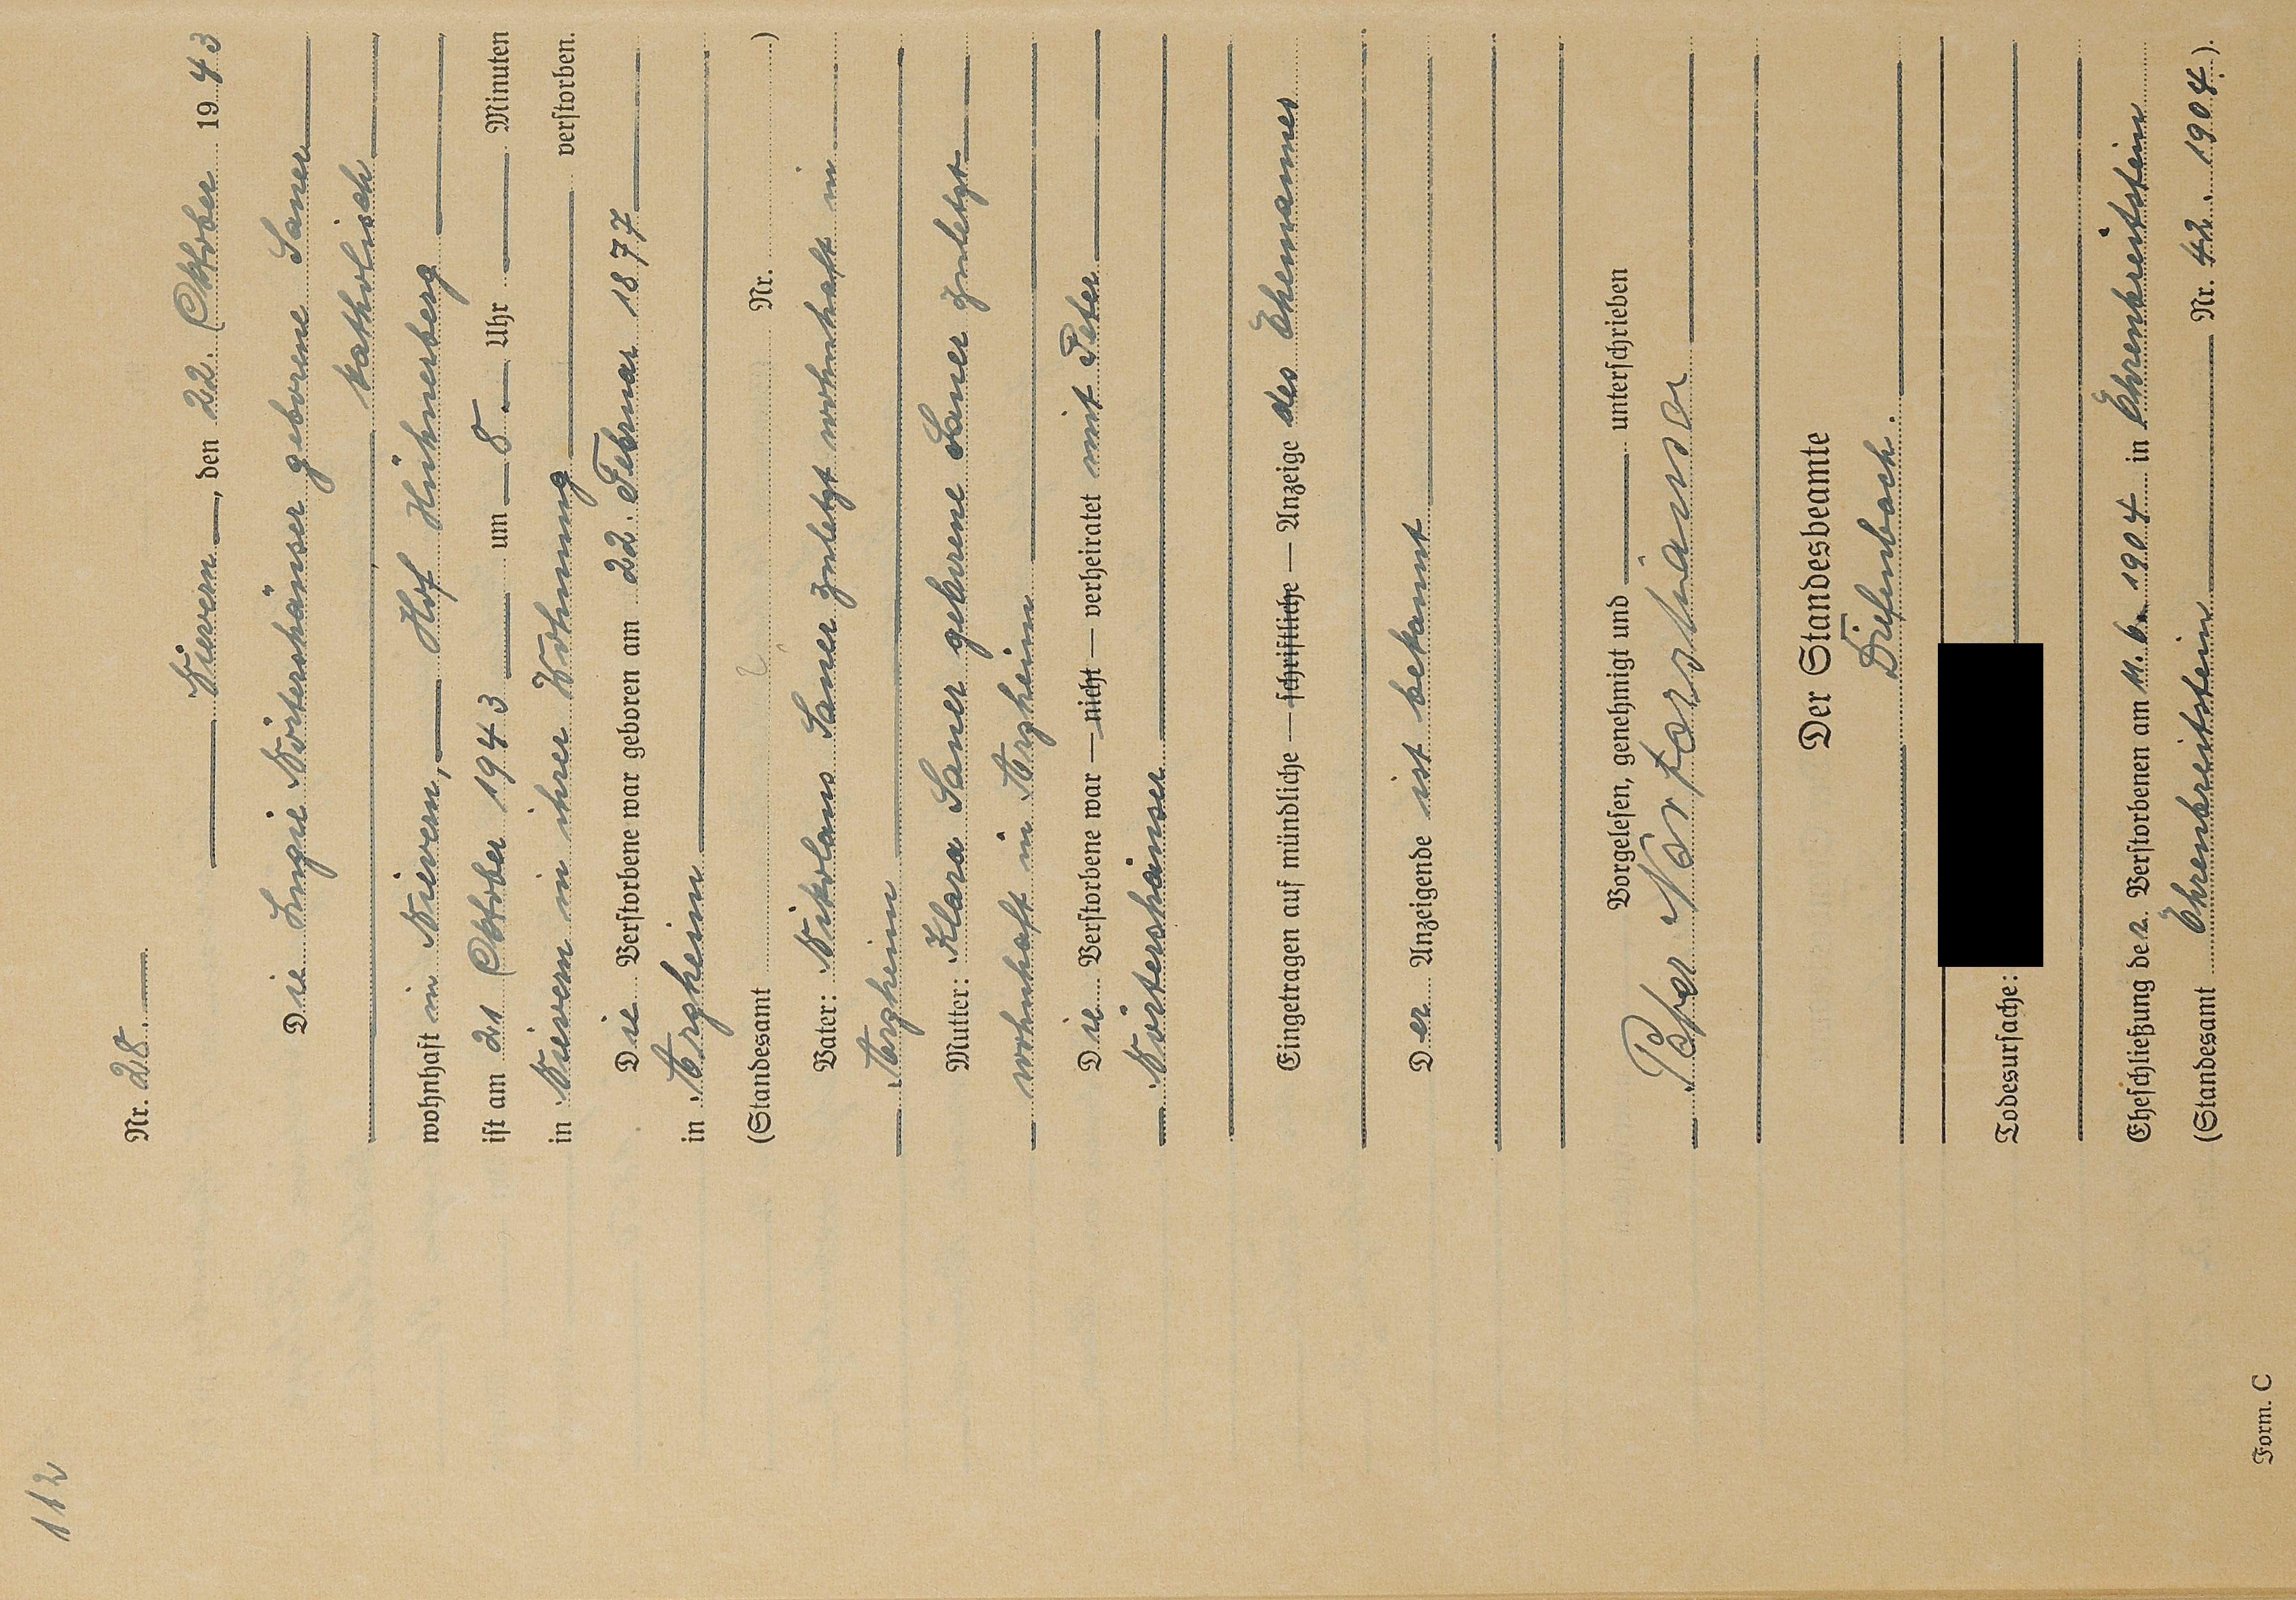 112
Nr. 28.
Nievern, den 22. Oktober 1943
Die Luzie Nörtershäuser geborene Saner
katholisch
wohnhaft in Nievern, Hof Hühnerberg
ist am 21 Oktober 1943 um 8 Uhr Minuten
in Nievern in ihrer Wohnung verstorben.
Die Verstorbene war geboren am 22. Februar 1877
in Arzheim
(Standesamt Nr. )
Vater: Nikolaus Saner zuletzt wohnhaft in
Arzheim
Mutter: Klara Saner geborene Saner zuletzt
wohnhaft in Arzheim
Die Verstorbene war — nicht — verheiratet mit Peter
Nörtershäuser
Eingetragen auf mündliche — schriftliche — Anzeige des Ehemannes
Der Anzeigende ist bekannt
Vorgelesen, genehmigt und unterschrieben
Peter Nörtershäuser
Der Standesbeamte
Diefenbach.
Todesursache:
Eheschließung der Verstorbenen am 11. 6. 1904 in Ehrenbreitstein
(Standesamt Ehrenbreitstein Nr. 42. 1904.).
Form. C